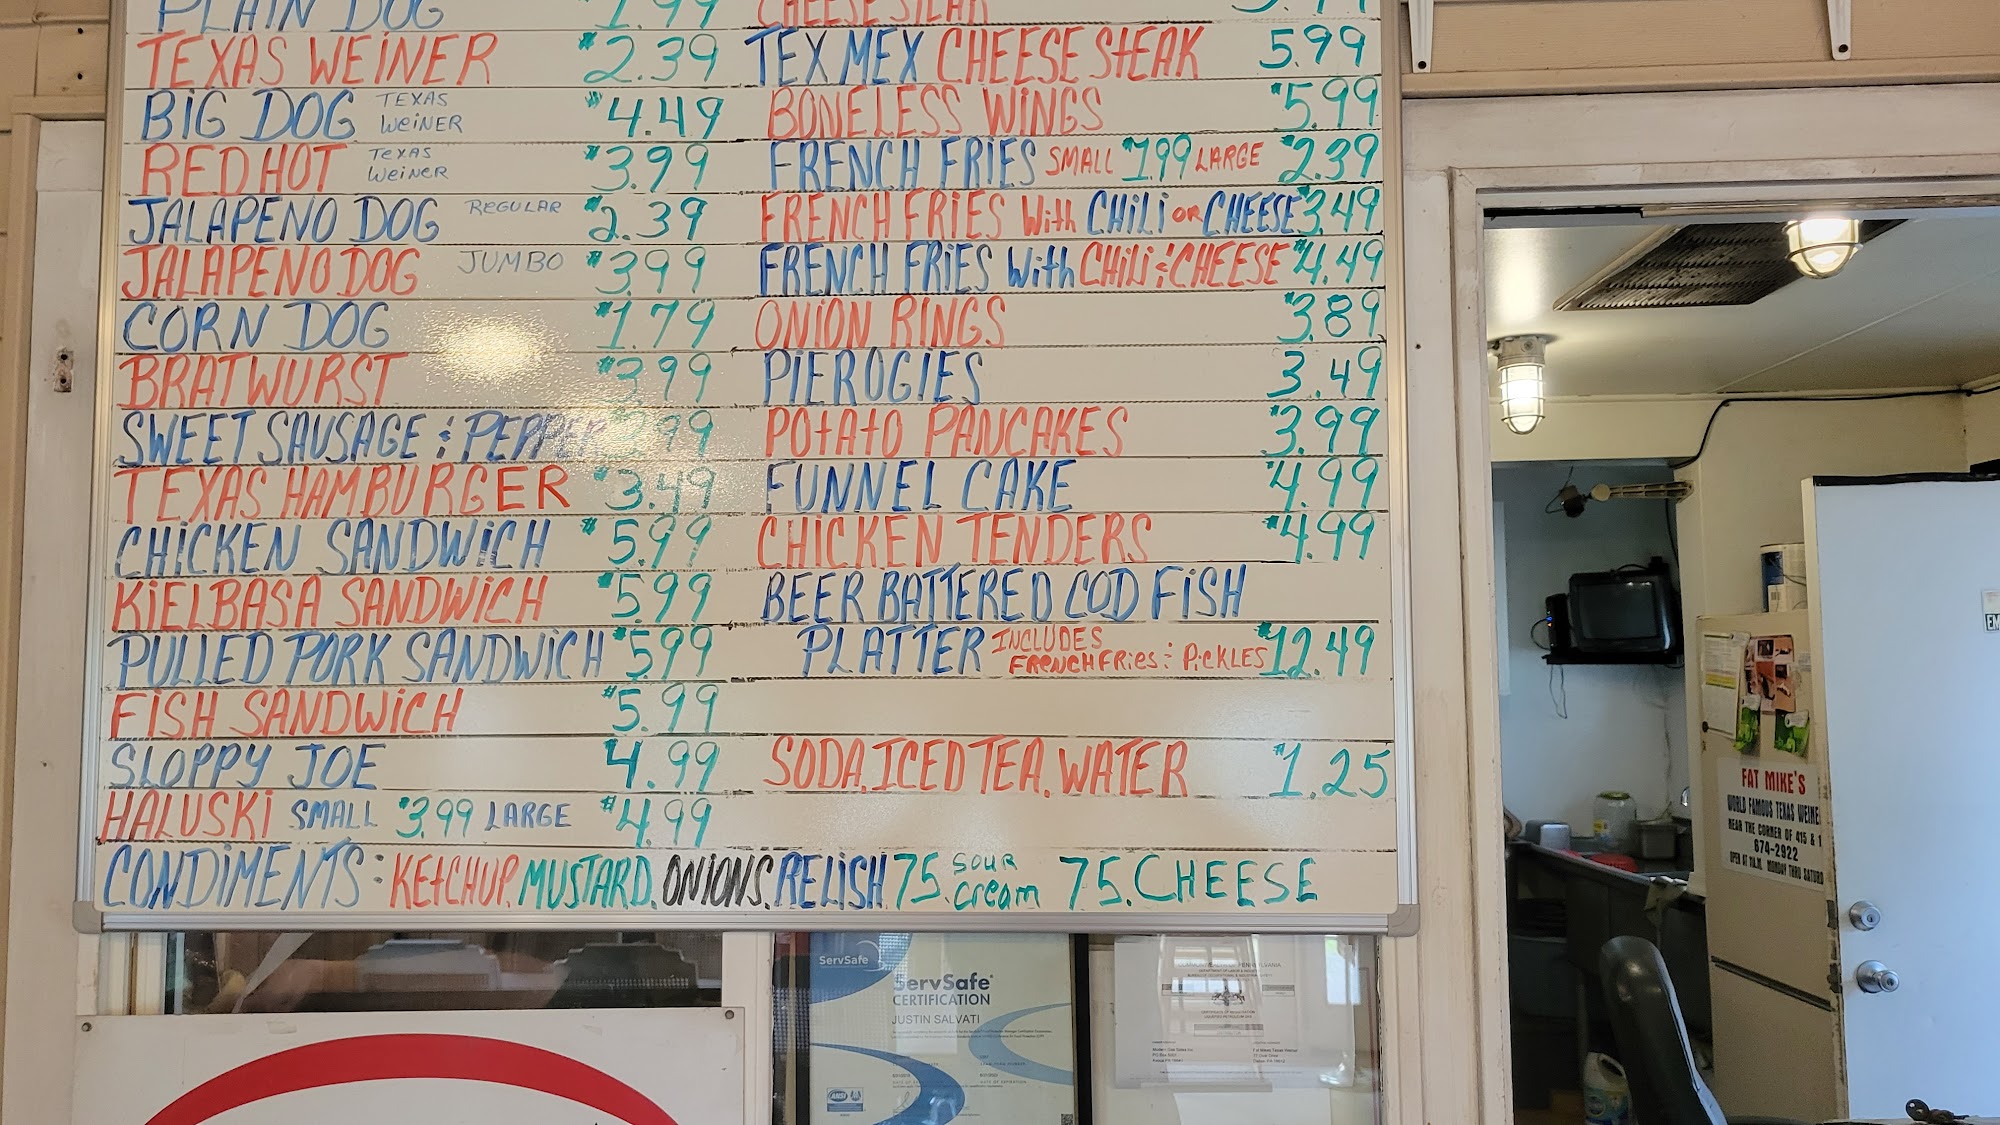 PLAIN DOG $1.99
TEXAS WEINER $2.39
BIG DOG TEXAS WEINER $4.49
RED HOT TEXAS WEINER $3.99
JALAPENO DOG REGULAR $2.39
JALAPENO DOG JUMBO $3.99
CORN DOG $1.79
BRATWURST $3.99
SWEET SAUSAGE & PEPPER 3.99
TEXAS HAMBURGER $3.49
CHICKEN SANDWICH $5.99
KIELBASA SANDWICH $5.99
PULLED PORK SANDWICH $5.99
FISH SANDWICH $5.99
SLOPPY JOE 4.99
HALUSKI SMALL $3.99 LARGE $4.99
CHEESE STEAK
TEX MEX CHEESE STEAK 5.99
BONELESS WINGS $5.99
FRENCH FRIES SMALL $1.99 LARGE $2.39
FRENCH FRIES With CHILI OR CHEESE $3.49
FRENCH FRIES With CHILI & CHEESE $4.49
ONION RINGS $3.89
PIEROGIES 3.49
POTATO PANCAKES $3.99
FUNNEL CAKE $4.99
CHICKEN TENDERS $4.99
BEER BATTERED COD FISH
PLATTER INCLUDES FRENCH FRIES & PICKLES $12.49
SODA, ICED TEA, WATER $1.25
CONDIMENTS: KETCHUP, MUSTARD, ONIONS, RELISH 75. SOUR CREAM 75. CHEESE
ServSafe
ServSafe®
CERTIFICATION
JUSTIN SALVATI
FAT MIKE'S
WORLD FAMOUS TEXAS WEINE
NEAR THE CORNER OF 415 & 1
674-2922
OPEN AT 11A.M. MONDAY THRU SATURD